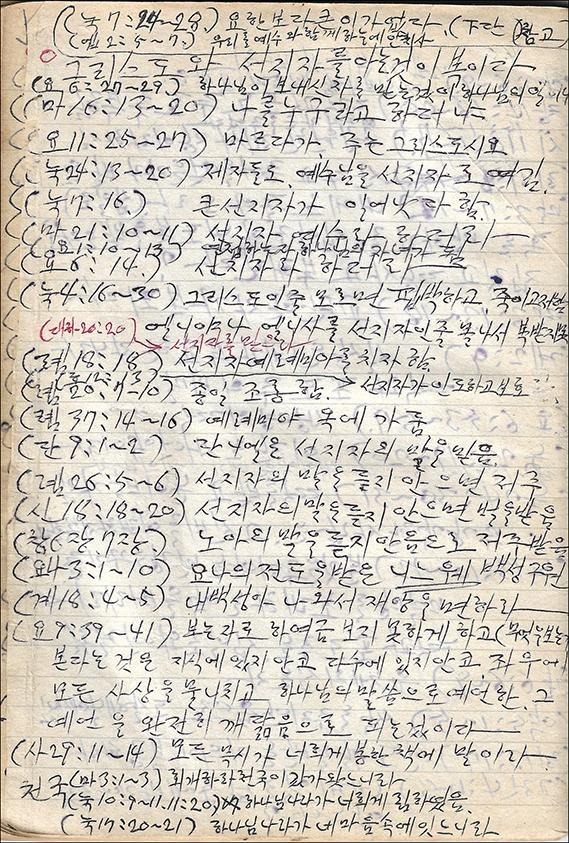 (눅7:24~28) 요한보다 큰이가 없다. (하단 참고
(엡2:5~7) 우리를 예수와 함께 하늘에 앉히사
그리스도와 선지자를 아는것이 복이다
(요6:27~29) 하나님이 보내신자를 믿는것이 하나님의 일이니
(마16:13~20) 나를 누구라고 하더냐
(요11:25~27) 마르다가, 주는 그리스도시요
(눅24:13~20) 제자들도 예수님을 선지자로 여김.
(눅7:16) 큰선지자가 일어났다 함.
(마21:10~11) 선지자 예수라 하더라
(요1:10~13) 영접하는자 하나님의 자녀가 됨
(요6:14.) 선지자라 하더라
(눅4:16~30) 그리스도인줄 모르면 핍박하고, 죽이고저함
(대하20:20) 엘니야나 엘니사를 선지자인줄 몰나서 복받지못
선지자를 믿으라
(렘18:18) 선지자 예레미야를 치자 함.
(렘20:7~10) 종일 조롱함. 선지자가 인도하고 보호
(렘37:14~16) 예레미야 옥에 가둠
(단9:1~2) 단니엘은 선지자의 말을 믿음.
(렘26:5~6) 선지자의 말을 듣지 안으면 저주
(신18:18~20) 선지자의 말을 듣지 안으면 벌을 받음
(창6장7장) 노아의 말을 듣지 안음으로 저주받음
(요나3:1~10) 요나의 전도을 받은 니느웨 백성 구원
(계18:4~5) 내백성아 나와서 재앙을 면하라
(요9:39~41) 보는자로 하여금 보지 못하게 하고 (무엇을 보는가
본다는 것은 지식에 있지 안코 다수에 있지 안코, 좌우에
모든 사상을 물니치고 하나님의 말씀으로 예언한 그
예언을 완전히 깨닮음으로 되는것이다
(사29:11~14) 모든 묵시가 너희게 봉한 책에 말이라
천국 (마3:1~3) 회개하라 천국이 갓가왓느니라
(눅10:9~11. 11:20) 하나님나라가 너희게 림하엿음.
(눅17:20~21) 하나님나라가 네 마음속에 잇느니라